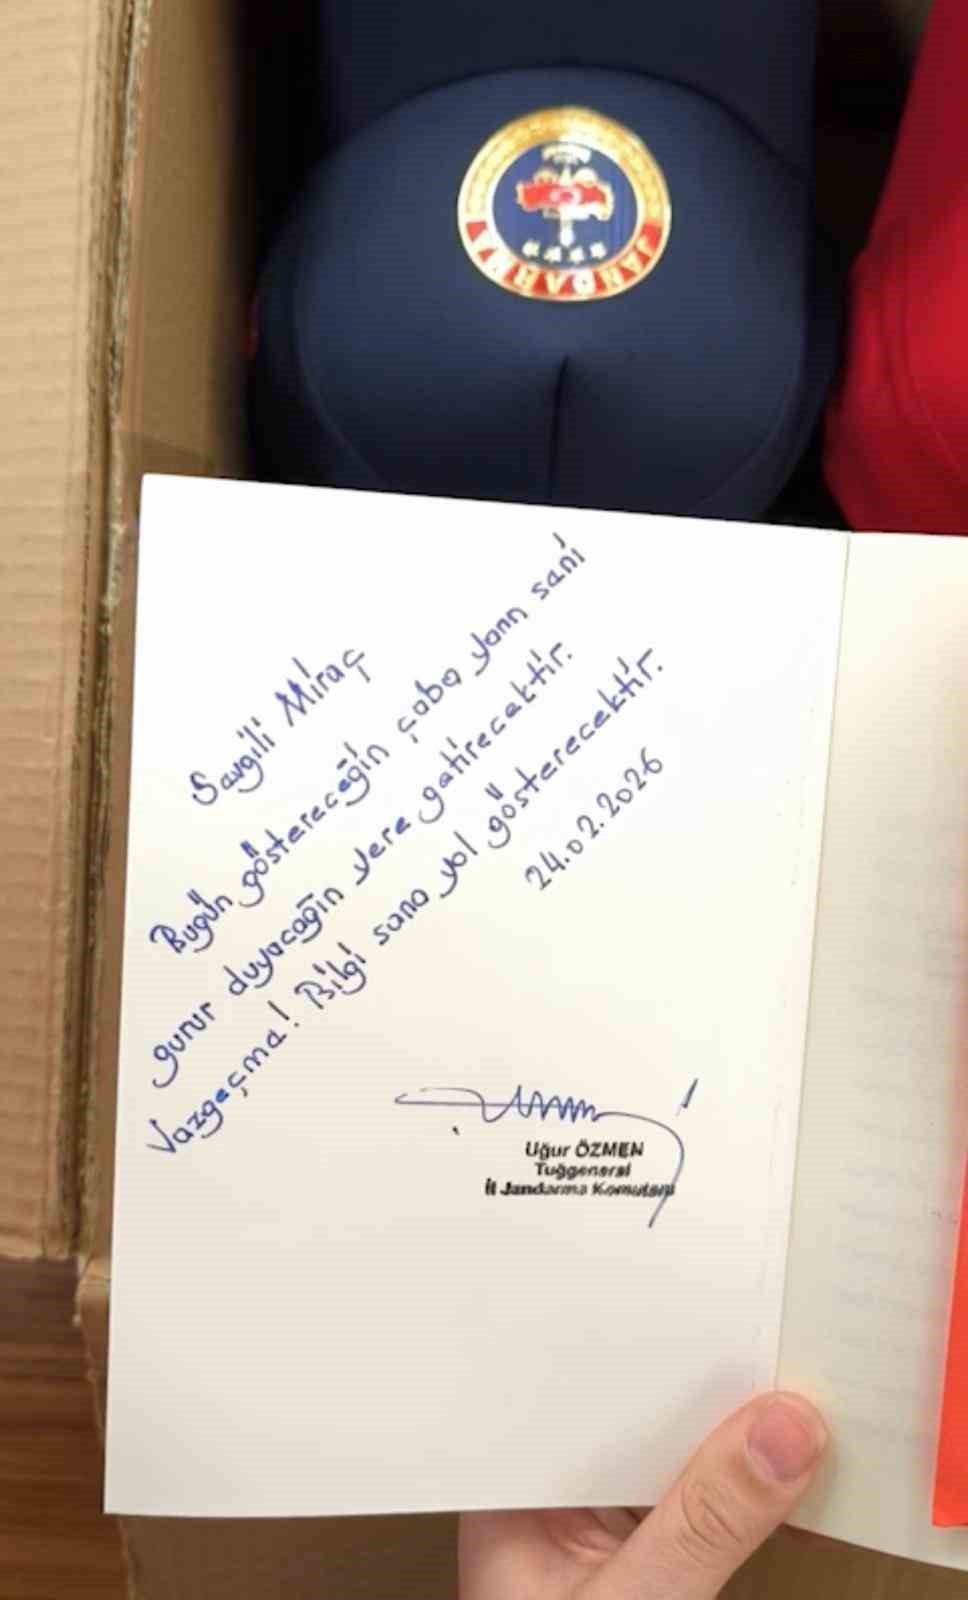 JANDARMA
Sevgili Miraç
Bugün göstereceğin çaba yarın seni
gurur duyacağın yere getirecektir.
Vazgeçme! Bilgi sana yol gösterecektir.
24.02.2026
Uğur ÖZMEN
Tuğgeneral
İl Jandarma Komutanı